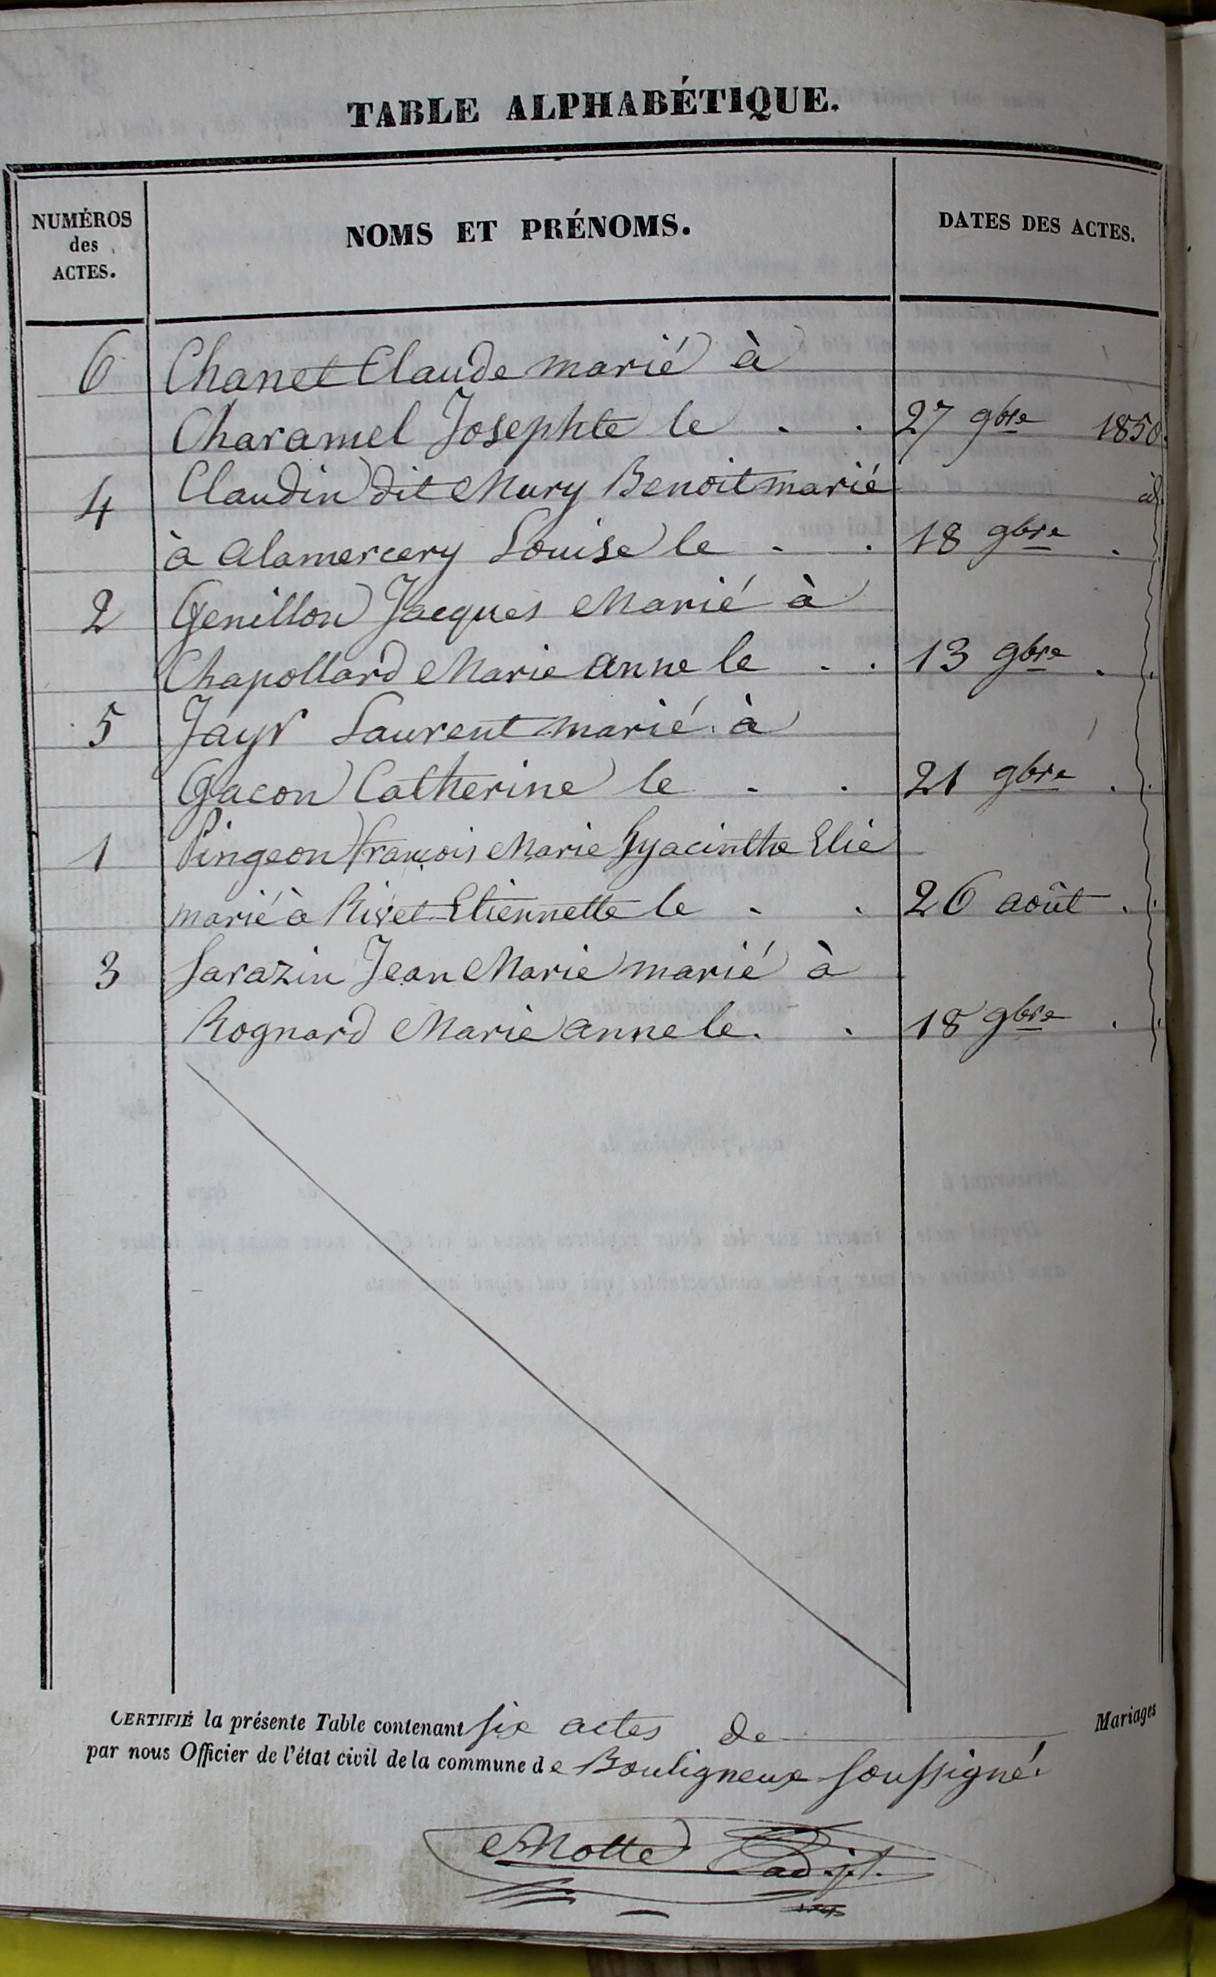 TABLE ALPHABÉTIQUE.
NUMÉROS des ACTES.
NOMS ET PRÉNOMS.
DATES DES ACTES.
6 Chanet Claude marié à
Charamel Josephte le . . 27 9bre 1850.
4 Claudin dit Mury Benoit marié id.
à Alamercery Louise le . . 18 9bre .
2 Genillon Jacques Marié à
Chapollard Marie anne le . . 13 9bre . .
5 Jayr Laurent marié à
Gacon Catherine le . . 21 9bre . .
1 Pingeon françois Marie hyacinthe Elie
marié à Rivet Etiennette le . . 26 août . .
3 Sarazin Jean Marie marié à
Rognard Marie anne le . . 18 9bre . .
CERTIFIÉ la présente Table contenant six actes de Mariages
par nous Officier de l'état civil de la commune de Bouligneux soussigné.
Motte adjt.